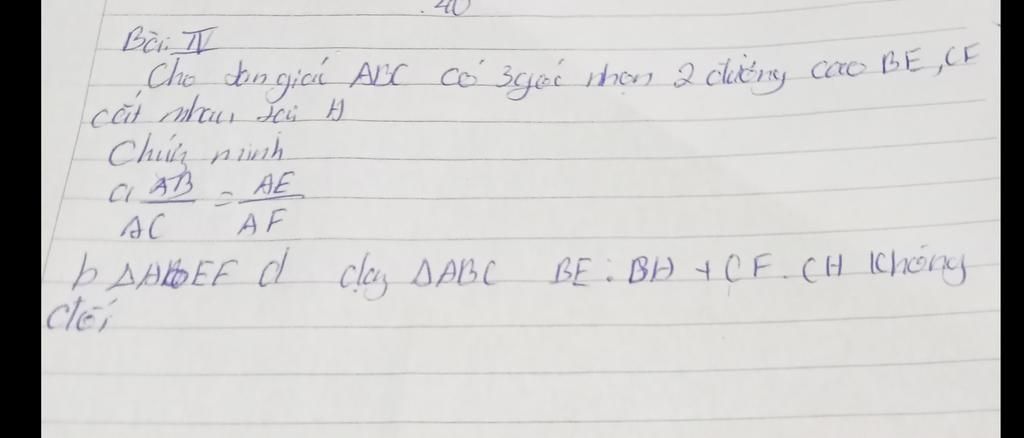 40
Bài IV
Cho tam giác ABC có 3 góc nhọn 2 đường cao BE, CF
cắt nhau tại H
Chứng minh
a, AB/AC = AE/AF
b ΔAEF ΔABC BE . BH + CF . CH không
đổi